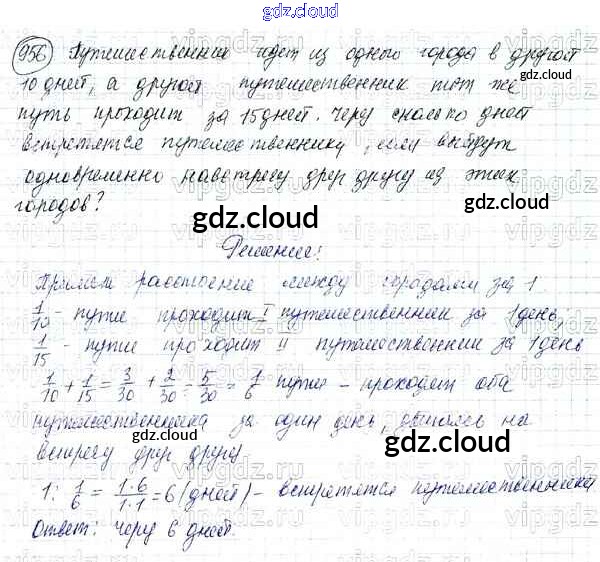 gdz.cloud
956 Путешественник идет из одного города в другой
gdz.cloud
10 дней, а другой путешественник тот же
путь проходит за 15 дней. Через сколько дней
gdz.cloud
встретятся путешественники, если выйдут
одновременно навстречу друг другу из этих
городов?
gdz.cloud gdz.cloud
Решение:
Примем расстояние между городами за 1.
1/10 - пути проходит I путешественник за 1 день;
1/15 - пути проходит II путешественник за 1 день
1/10 + 1/15 = 3/30 + 2/30 = 5/30 = 1/6 пути - проходят оба
путешественника за один день, двигаясь на
встречу друг другу.
gdz.cloud gdz.cloud
1 : 1/6 = 1·6/1·1 = 6 (дней) - встретятся путешественники
Ответ: через 6 дней.